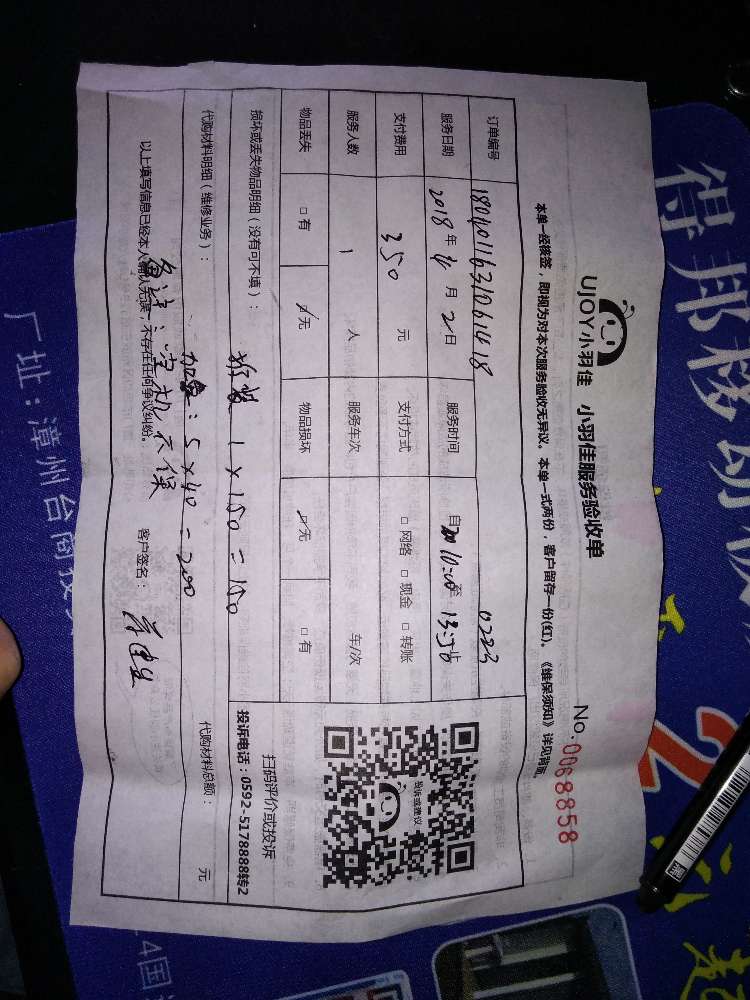 UJOY小羽佳 小羽佳服务验收单
No.0068858
本单一经核签，即视为对本次服务验收无异议。本单一式两份，客户留存一份(红)。《维保须知》详见背面。
订单编号 1804011631061418 0223
服务日期 2018年4月2日 服务时间 自 10:00至 13:56
支付费用 350 元 支付方式 □网络 □现金 □转账
服务人数 1 人 服务车次 车/次
物品丢失 □有 □无 物品损坏 □无 □有
投诉或建议
扫码评价或投诉
投诉电话：0592-5178888转2
损坏或丢失物品明细（没有可不填）：
拆装 1×150=150
代购材料明细（维修业务）：
代购材料总额： 元
加氟：5×40=200
备注：空机不保
以上填写信息已经本人确认无误，不存在任何争议纠纷。 客户签名：
得邦移动
2
厂址：漳州台商投
4国